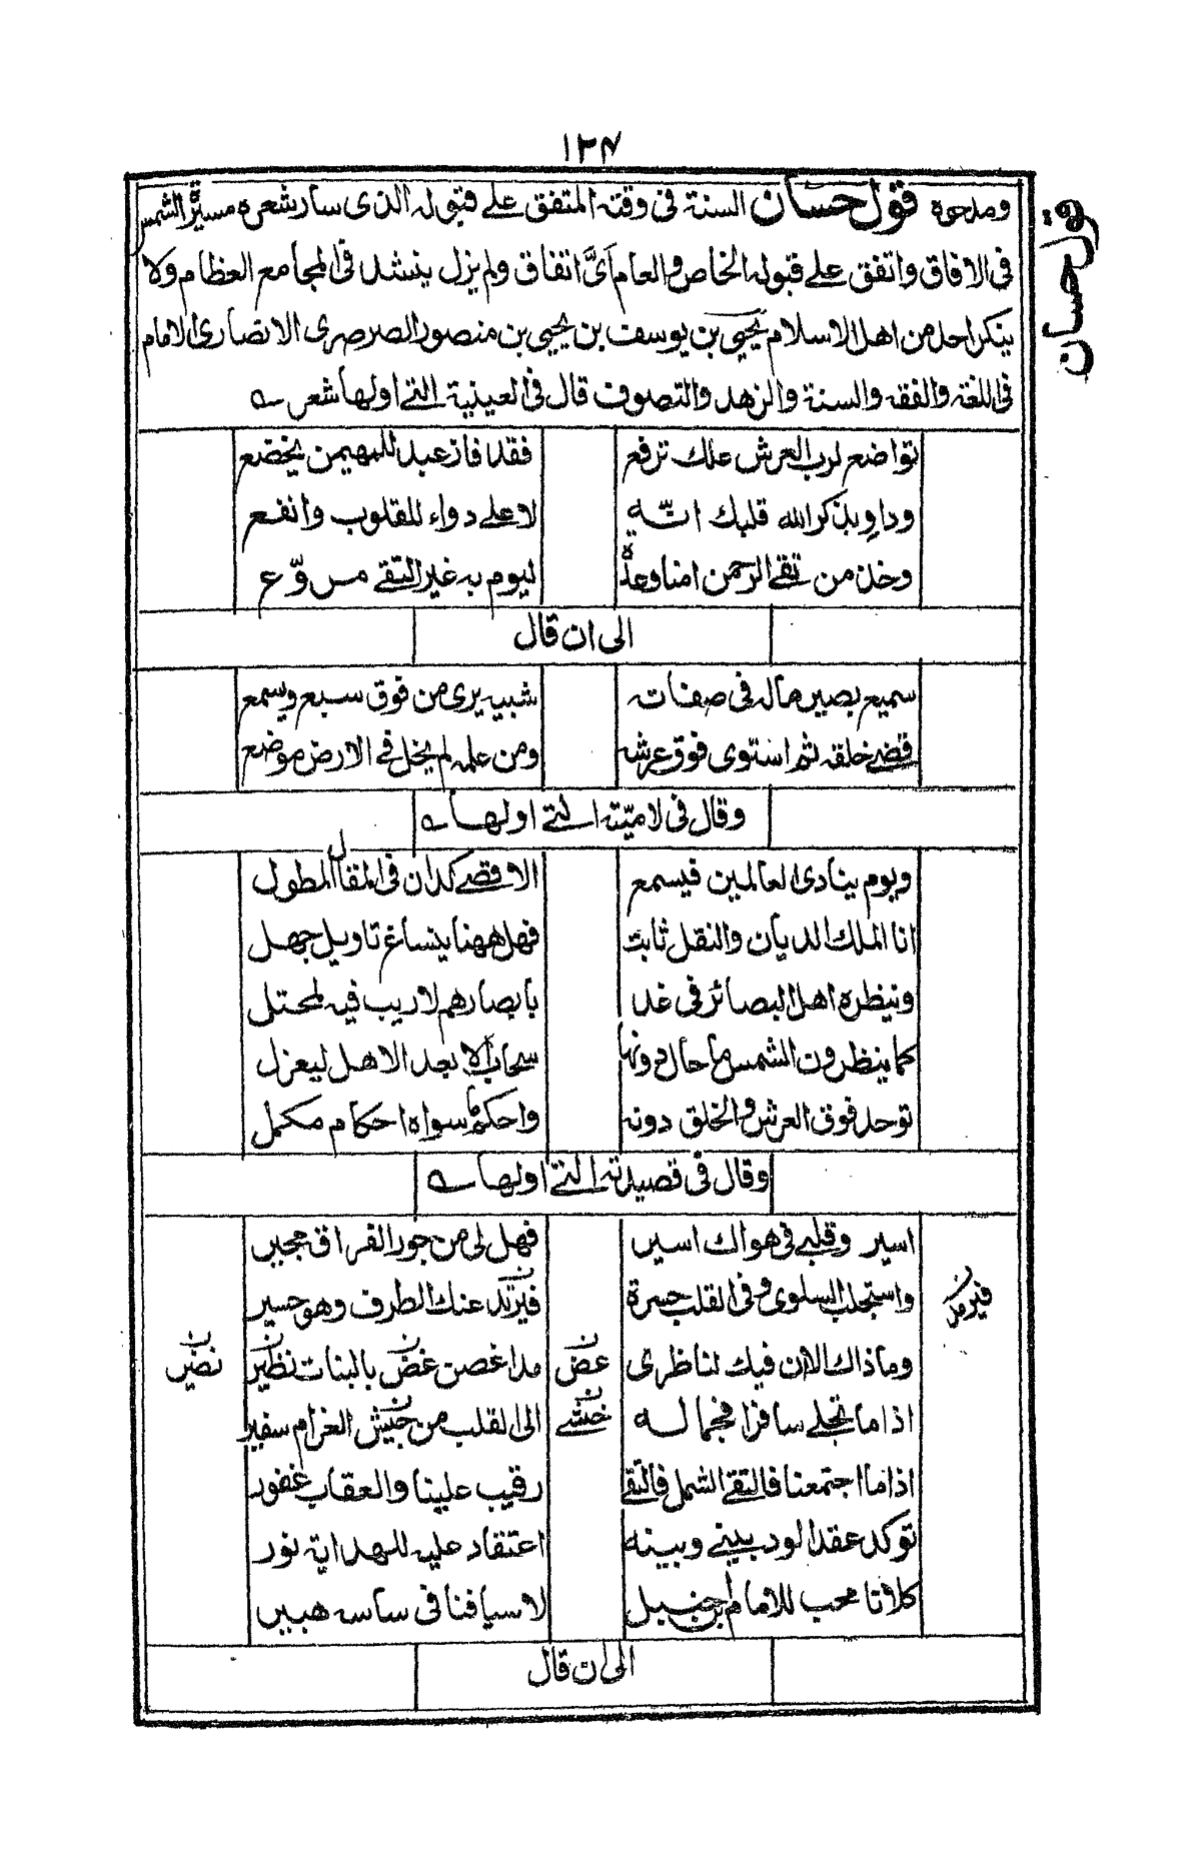 ١٢٤
ومدحوه قول حسان السنة فى وقته المتفق على قبوله الذى سار شعره مسير الشمس
قول حسان
فى الافاق واتفق على قبوله الخاص والعام اىّ اتفاق ولم يزل ينشد فى المجامع العظام ولا
ينكر احد من اهل الاسلام يحيى بن يوسف بن يحيى بن منصور الصرصرى الانصارى الامام
فى اللغة والفقه والسنة والزهد والتصوف قال فى العينية التى اولها شعر
تواضع لرب العرش علك ترفع فقد فاز عبد للمهيمن يخضع
وداوِ بذكر الله قلبك انّه لاعلى دواء للقلوب وانفع
وخذ من تقى الرحمن امنا وعدّة ليوم به غير التقى مروّع
الى ان قال
سميع بصير ماله فى صفاته شبيه يرى من فوق سبع ويسمع
قضى خلقه ثم استوى فوق عرشه ومن علمه لم يخل فى الارض موضع
وقال فى لاميّته التى اولها
ويوم ينادى العالمين فيسمع الاقصى كدان فى المقال المطول
انا الملك الديان والنقل ثابت فهل ههنا ينساغ تاويل جهل
وينظره اهل البصائر فى غد بابصارهم لا ريب فيه لمحتل
كما ينظرون الشمس ما حال دونها سحاب الا بعد الاهل ليعزل
توحد فوق العرش والخلق دونه واحكم ما سواه احكام مكمل
وقال فى قصيدته التى اولها
اسير وقلبى فى هواك اسير فهل لى من جور الفراق مجير
واستجلب السلوى وفى القلب حسرة فيرتد عنك الطرف وهو حسير
وما ذاك الا ان فيك لناظرى غض مدا غصن غض بالبنات نظير نضير
اذا ما تجلى سافرا فجماله الى القلب من جيش الغرام سفير
اذا ما اجتمعنا فالتقى الشمل فالتقى رقيب علينا والعقاب غفور
توكد عقد الود بينى وبينه اعتقاد عليه للهداية نور
كلانا محب للامام ابن حنبل لاسيافنا فى ساسه هبير
الى ان قال